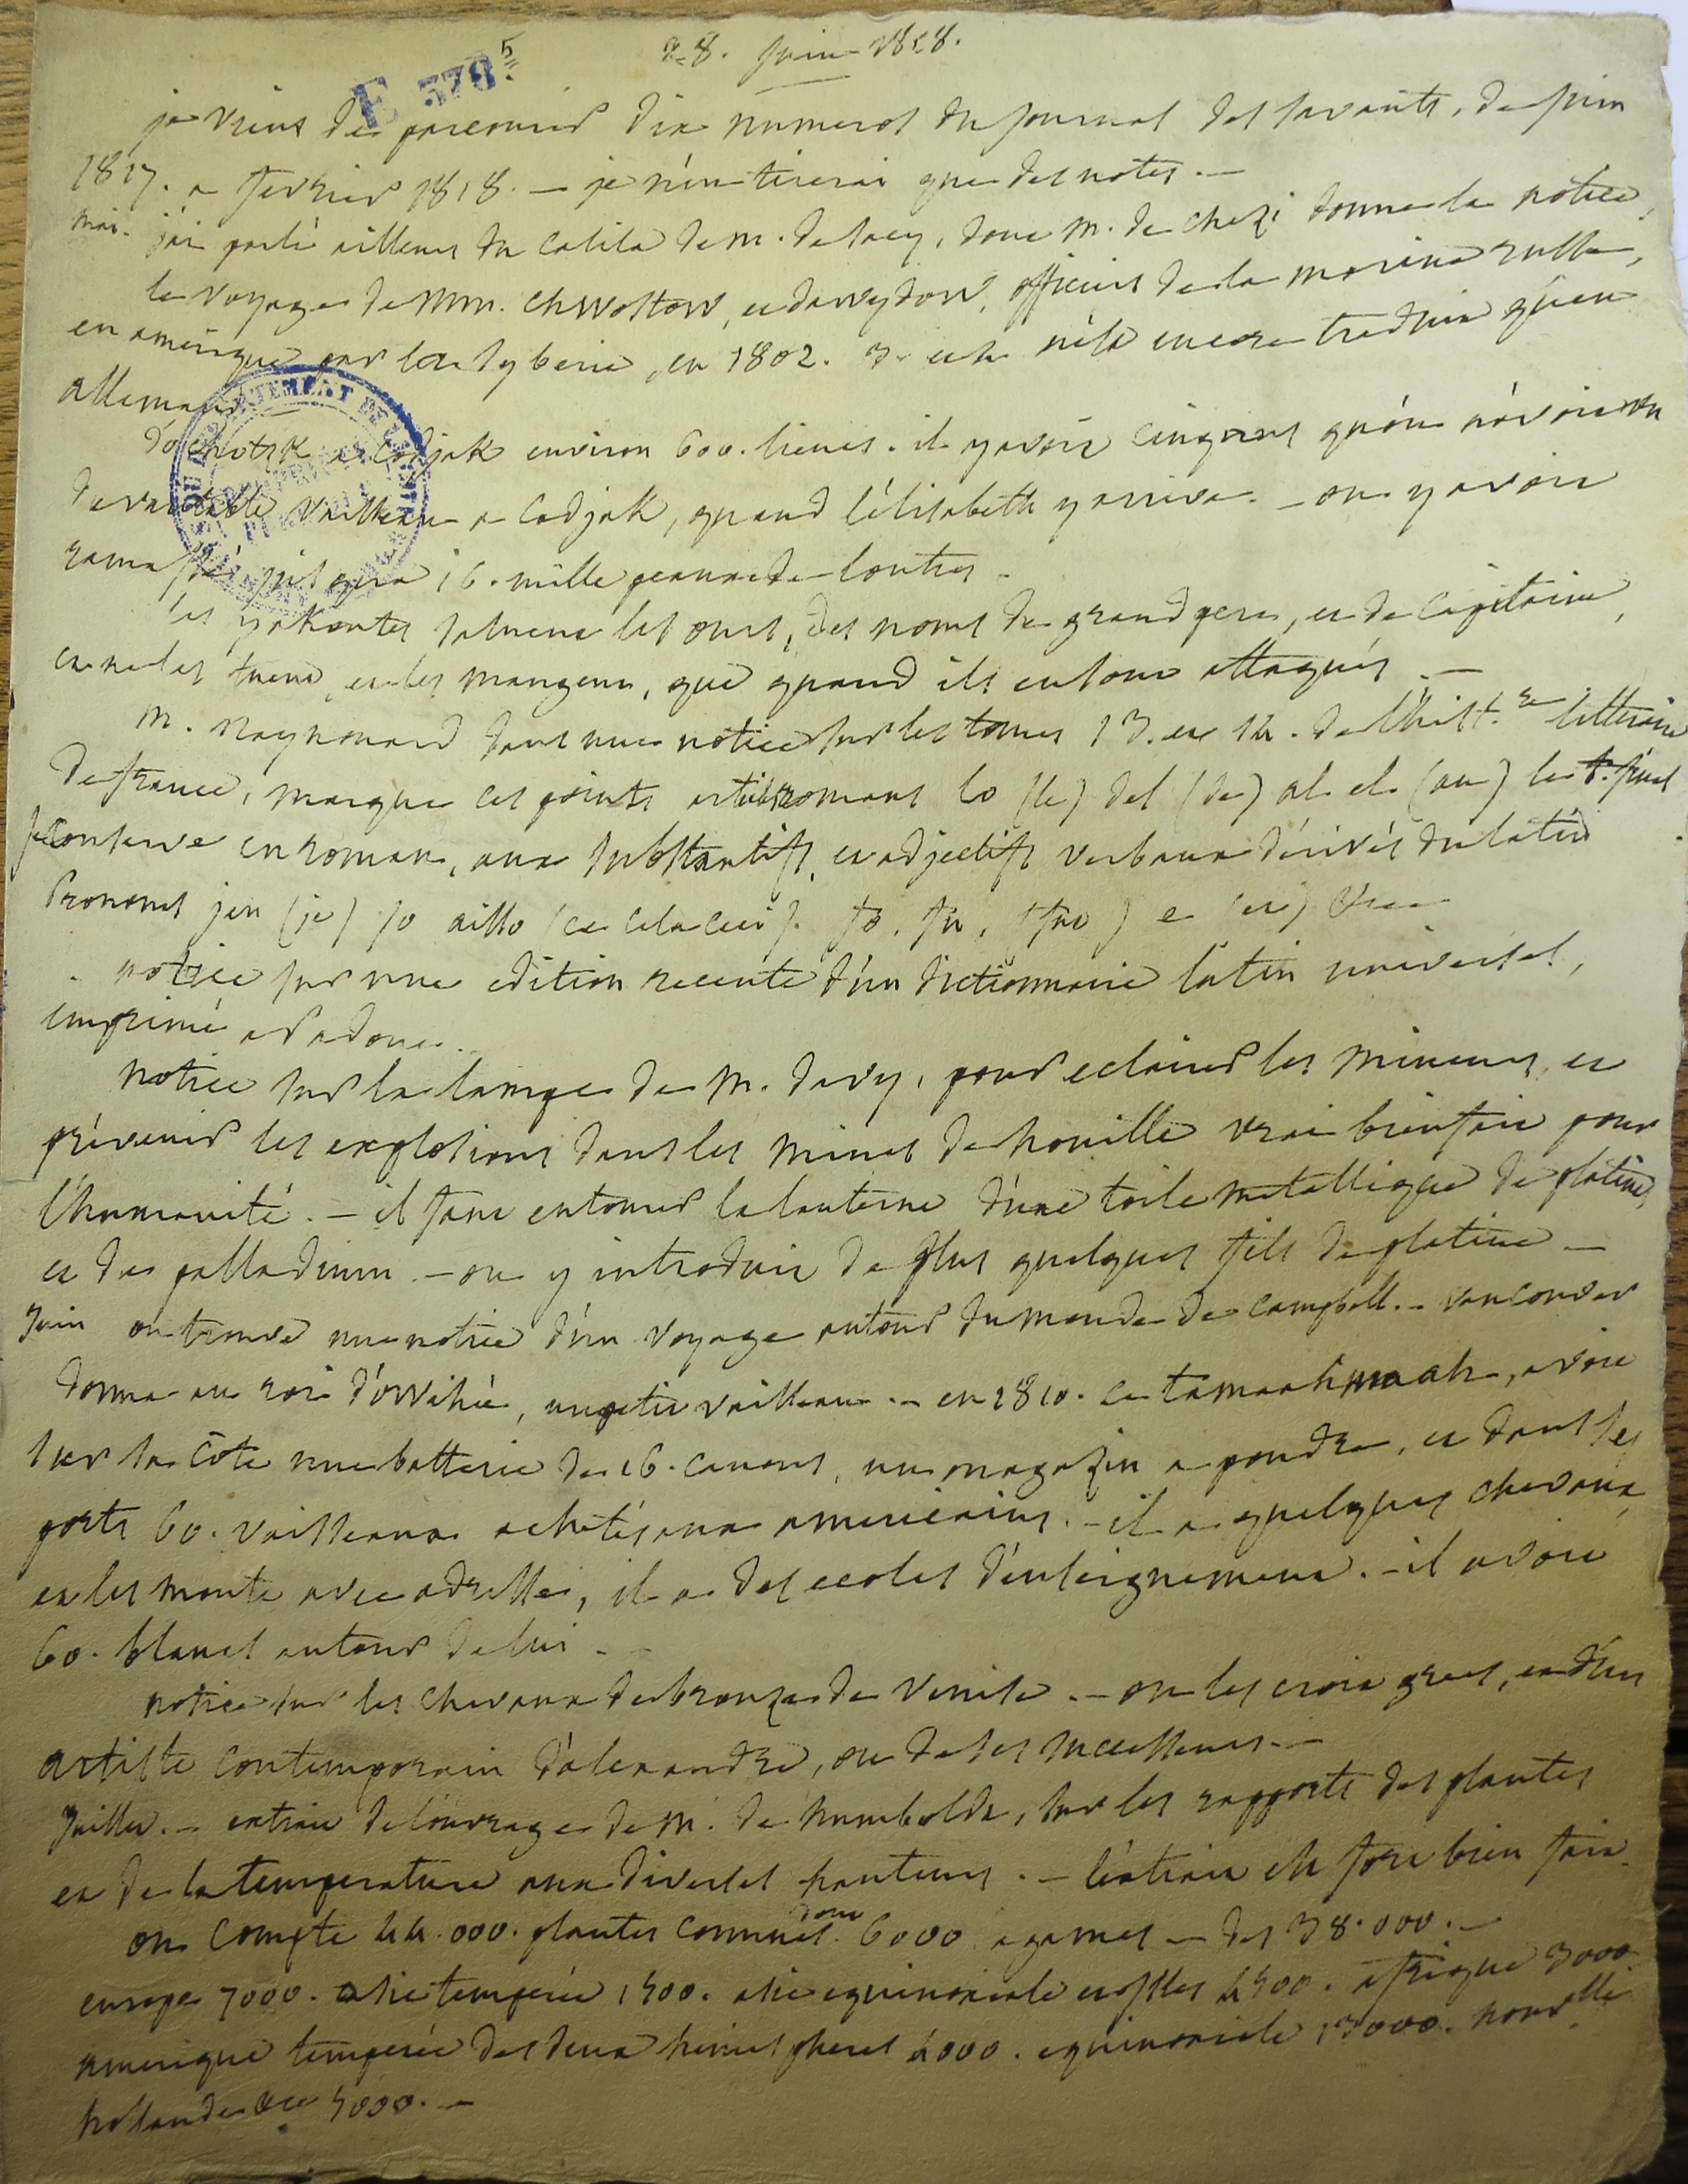 28. juin 1818.
E 378 5
je viens de parcourir dix numeros du journal des savants, de juin
1817. a fevrier 1818. — je n'en tirerai que des notes. —
mai. j'ai parlé ailleurs du Calila de m. de Sacy, dont m. de chezi donne la notice,
le voyage de mm. Chwostow, et dawydow, officiers de la marine russe,
en amerique par la syberie, en 1802. 3. et 4. n'est encore traduit qu'en
allemand. —
d'ochotsk a Codjak environ 600. lieues. il y avoit cinq ans qu'on n'avoit vu
de veritable vaisseau a Codjak, quand l'elisabeth y arriva. — on y avoit
ramassé jusqu'a 16. mille peaux de loutres —
les yakoutes saluent les ours, des noms de grand pere, et de Capitaine,
et ne les tuent, et les mangent, que quand ils en sont attaqués —
m. Raynouard dans une notice sur les tomes 13. et 14. de l'hist.re litteraire
de france, marque ces points articles romans lo (le) del (de) al el (au) le t. final
se conserve en roman, aux substantifs, et adjectifs verbaux dérivés du latin
Pronoms jeu (je) so aisso (ce cela ceci). to, tu, (tu) e (et) &c
notice sur une edition recente d'un dictionnaire latin universel,
imprimé a Padoue. —
notice sur la lampe de m. Davy, pour eclairer les mineurs, et
prévenir les explosions dans les mines de houille vrai bienfait pour
l'humanité. — il faut entourer la lanterne d'une toile metallique de platine,
et de palladium. — on y introduit de plus quelques fils de platine —
Juin on trouve une notice d'un voyage autour du monde de Campbell. — vancouver
donna au roi d'owihée, un petit vaisseau. — en 1810. ce tamaahmaah, avoit
sur la côte une batterie de 16. canons, un magazin a poudre, et dans ses
ports 60. vaisseaux achetés aux americains. — il a quelques chevaux,
et les monte avec adresse, il a des ecoles d'enseignement. — il avoit
60. blancs autour de lui —
notice sur les chevaux de bronze de Venise. — on les croit grecs, et d'un
artiste contemporain d'alexandre, ou de ses successeurs. —
Juillet. — extrait de l'ouvrage de m. de humboldt, sur les rapports des plantes
et de la temperature aux diverses hauteurs. — l'extrait est fort bien fait.
on compte 44.000. plantes connues. dont 6000 agames — des 38.000. —
europe 7000. asie temperée 1500. asie equinoxiale et isles 4500. afrique 3000.
amerique temperée des deux hemispheres 4000. equinoxiale 13000. nouvelle
hollande &c 5000. —